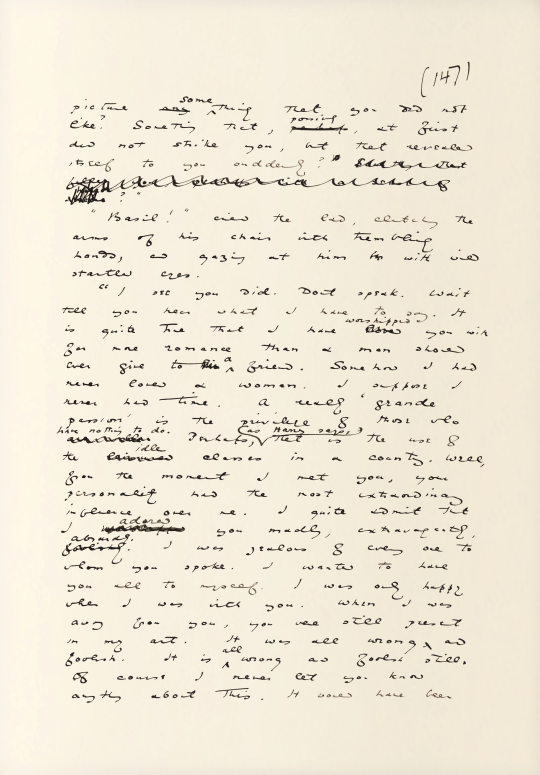 (147)
picture any something that you did not
like? Something that, possibly perhaps, at first
did not strike you, but that revealed
itself to you suddenly?"
?"
"Basil!" cried the lad, clutching the
arms of his chair with trembling
hands, and gazing at him with wild
startled eyes.
"I see you did. Dont speak. Wait
till you hear what I have to say. It
is quite true that I have worshipped you with
far more romance than a man should
ever give to a friend. Somehow I had
never loved a woman. I suppose I
never had time. A really 'grande
passion' is the privilege of those who
have nothing to do. Perhaps, (as Harry says,) that is the use of
the idle classes in a country. Well,
from the moment I met you, your
personality had the most extraordinary
influence over me. I quite admit that
I adored you madly, extravagantly,
absurdly. foolishly. I was jealous of every one to
whom you spoke. I wanted to have
you all to myself. I was only happy
when I was with you. When I was
away from you, you were still present
in my art. It was all wrong and
foolish. It is all wrong and foolish still.
Of course I never let you know
anything about this. It would have been